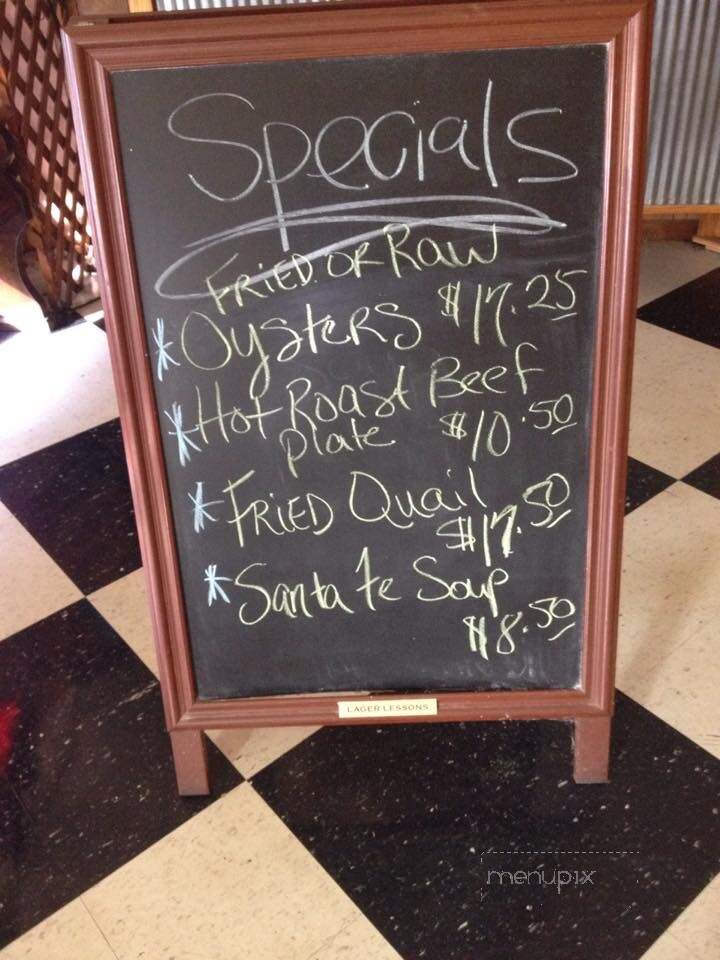 Specials
FRIED OR RAW
*Oysters $17.25
*Hot Roast Beef
plate $10.50
*FRIED Quail
$17.50
*Santa Fe Soup
$8.50
LAGER LESSONS
menupix